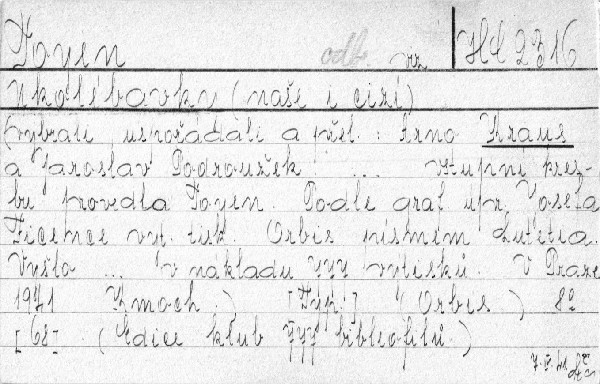 Toyen odb. vz Hd 2316
Ukolébavky (naše i cizí)
(vybrali, uspořádali a přel.: Arno Kraus
a Jaroslav Podroužek ... vstupní kres-
bu provedla Toyen. Podle graf. úpr. Josefa
Ficence vyt. tisk. Orbis písmem Lutetia.
Vyšlo ... v nákladu 777 výtisků. V Praze
1941 Kmoch.) [Typ.] (Orbis) 8°
[68] (Edice klub 777 bibliofilů.)